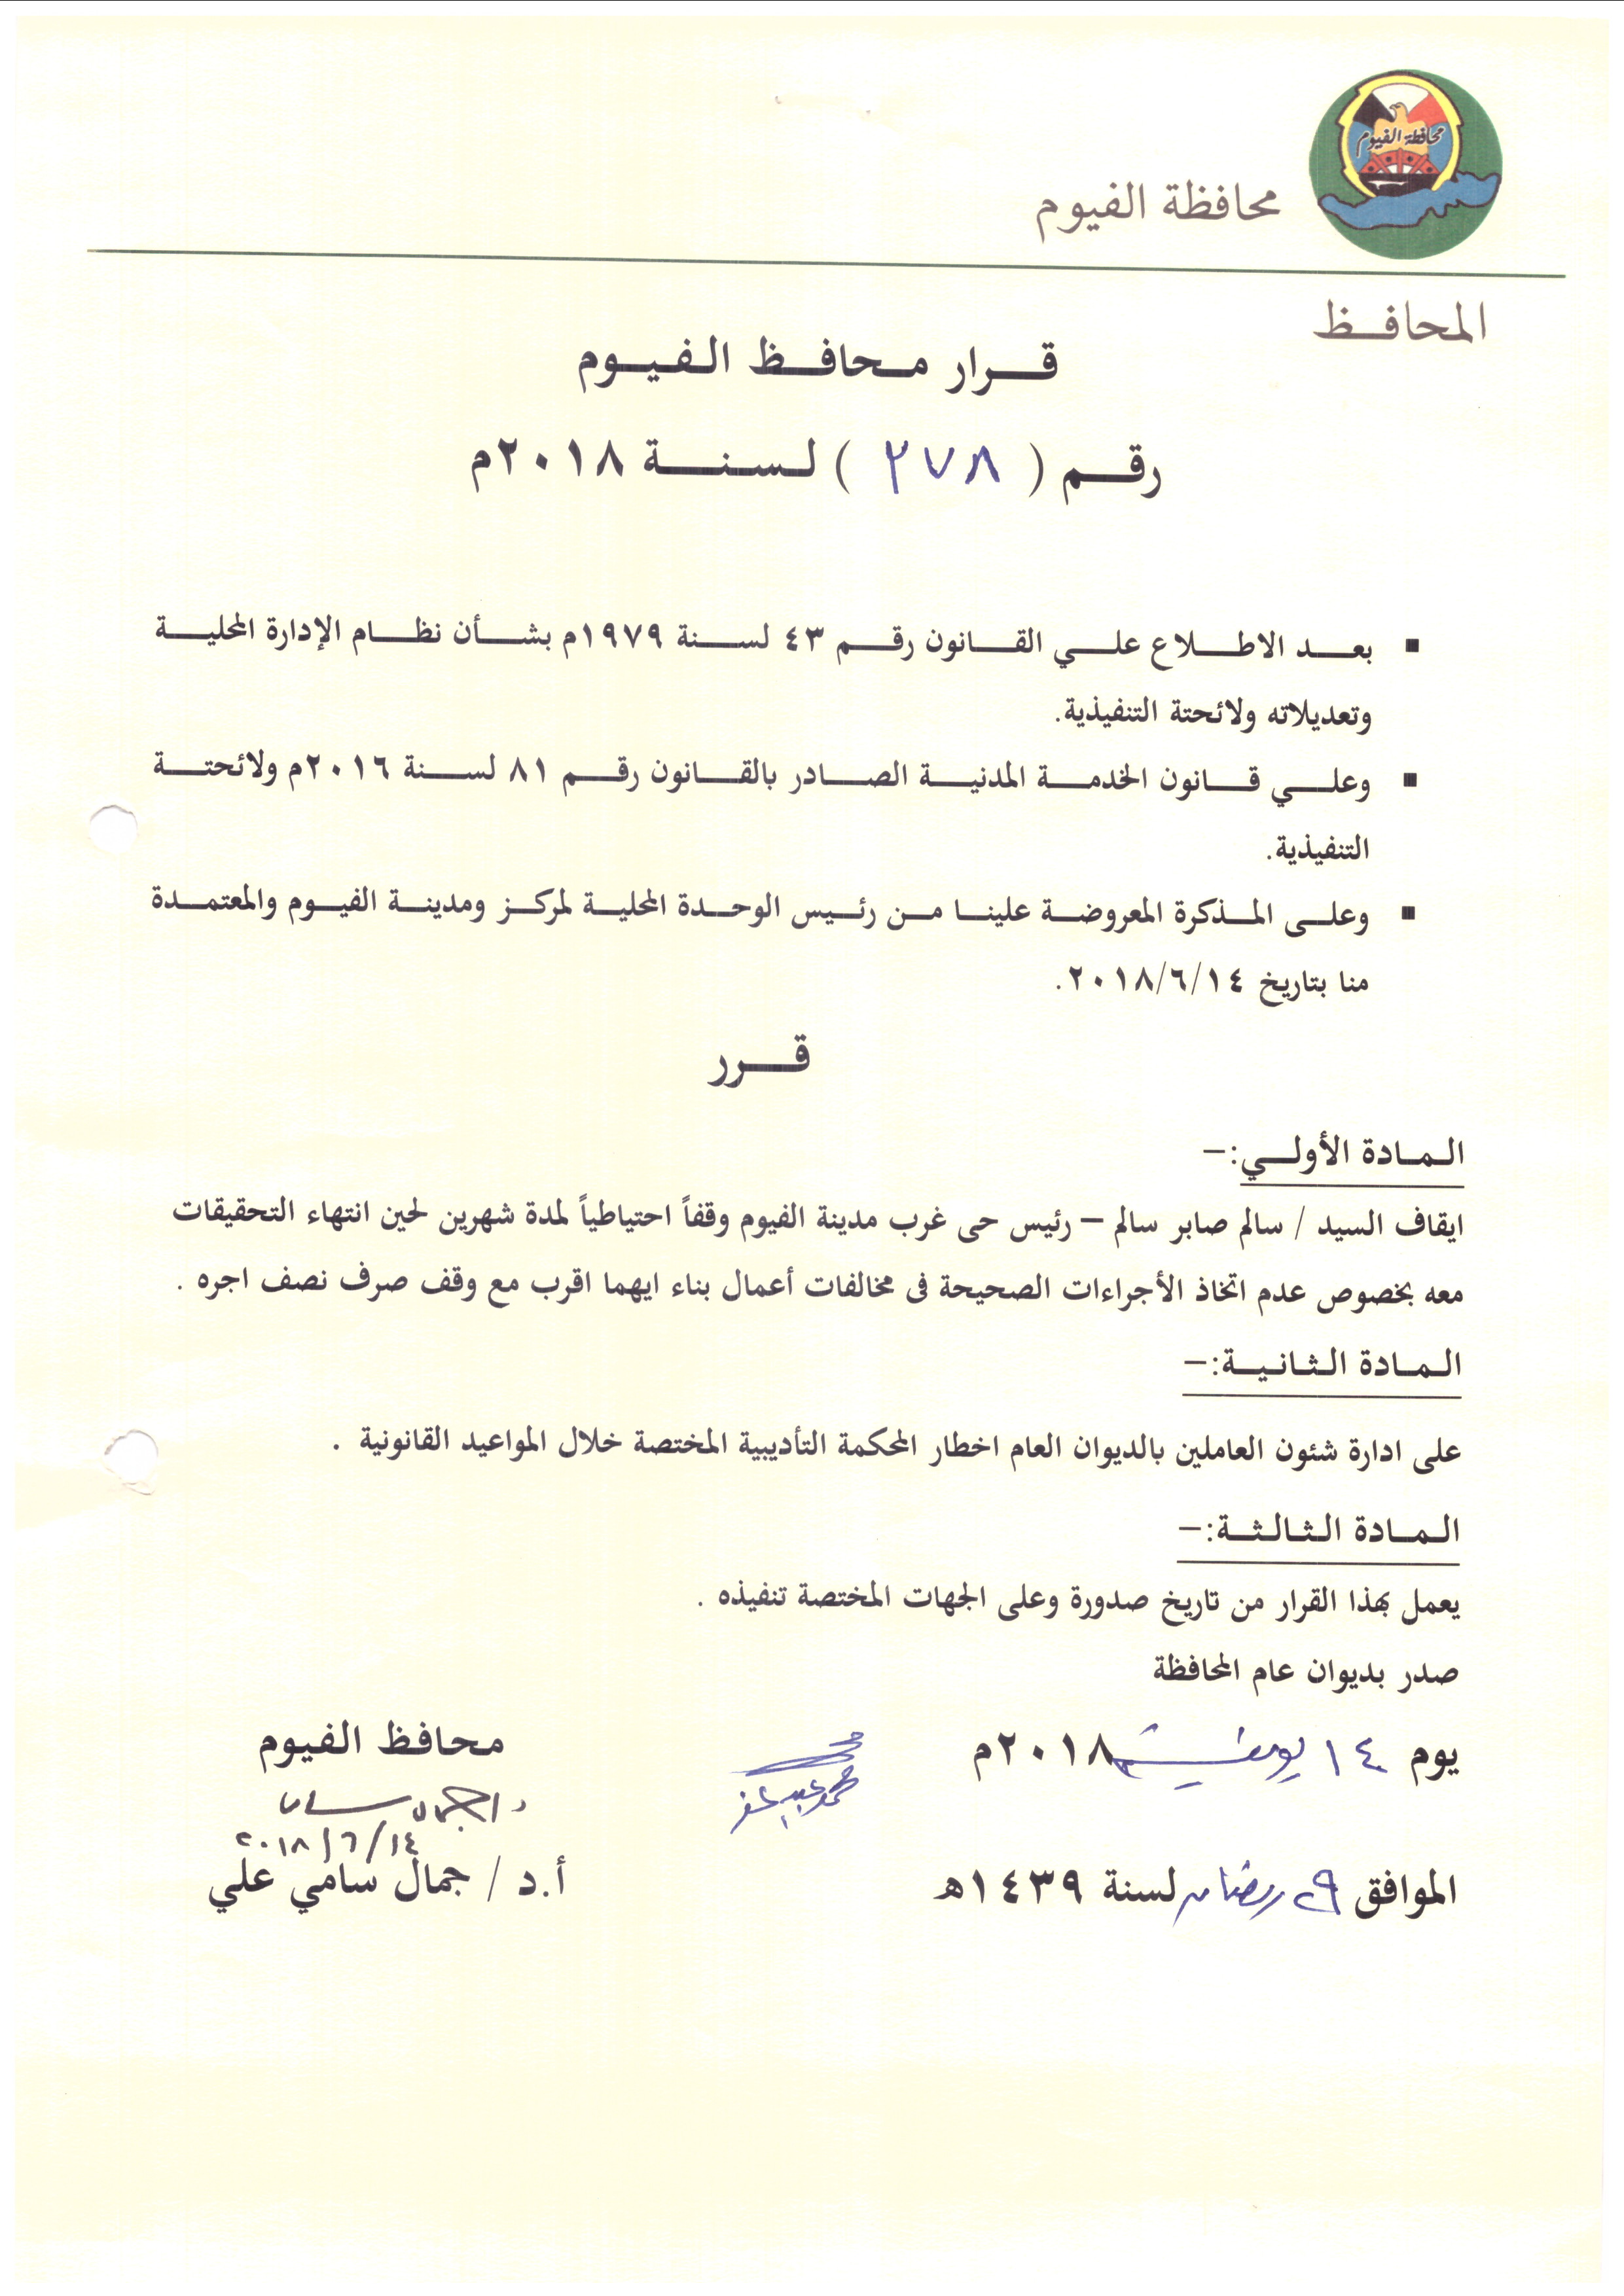 محافظة الفيوم
محافظة الفيوم
المحافظ
قرار محافظ الفيوم
رقم ( ٢٧٨ ) لسنة ٢٠١٨م
▪ بعد الاطلاع علي القانون رقم ٤٣ لسنة ١٩٧٩م بشأن نظام الإدارة المحلية
وتعديلاته ولائحتة التنفيذية.
▪ وعلي قانون الخدمة المدنية الصادر بالقانون رقم ٨١ لسنة ٢٠١٦م ولائحتة
التنفيذية.
▪ وعلى المذكرة المعروضة علينا من رئيس الوحدة المحلية لمركز ومدينة الفيوم والمعتمدة
منا بتاريخ ٢٠١٨/٦/١٤.
قرر
المادة الأولي:–
ايقاف السيد / سالم صابر سالم – رئيس حى غرب مدينة الفيوم وقفاً احتياطياً لمدة شهرين لحين انتهاء التحقيقات
معه بخصوص عدم اتخاذ الأجراءات الصحيحة فى مخالفات أعمال بناء ايهما اقرب مع وقف صرف نصف اجره .
المادة الثانية:–
على ادارة شئون العاملين بالديوان العام اخطار المحكمة التأديبية المختصة خلال المواعيد القانونية .
المادة الثالثة:–
يعمل بهذا القرار من تاريخ صدورة وعلى الجهات المختصة تنفيذه .
صدر بديوان عام المحافظة
يوم ١٤ يونية ٢٠١٨م
الموافق ٢٩ رمضان لسنة ١٤٣٩ه
محافظ الفيوم
٢٠١٨/٦/١٤
أ.د / جمال سامي علي